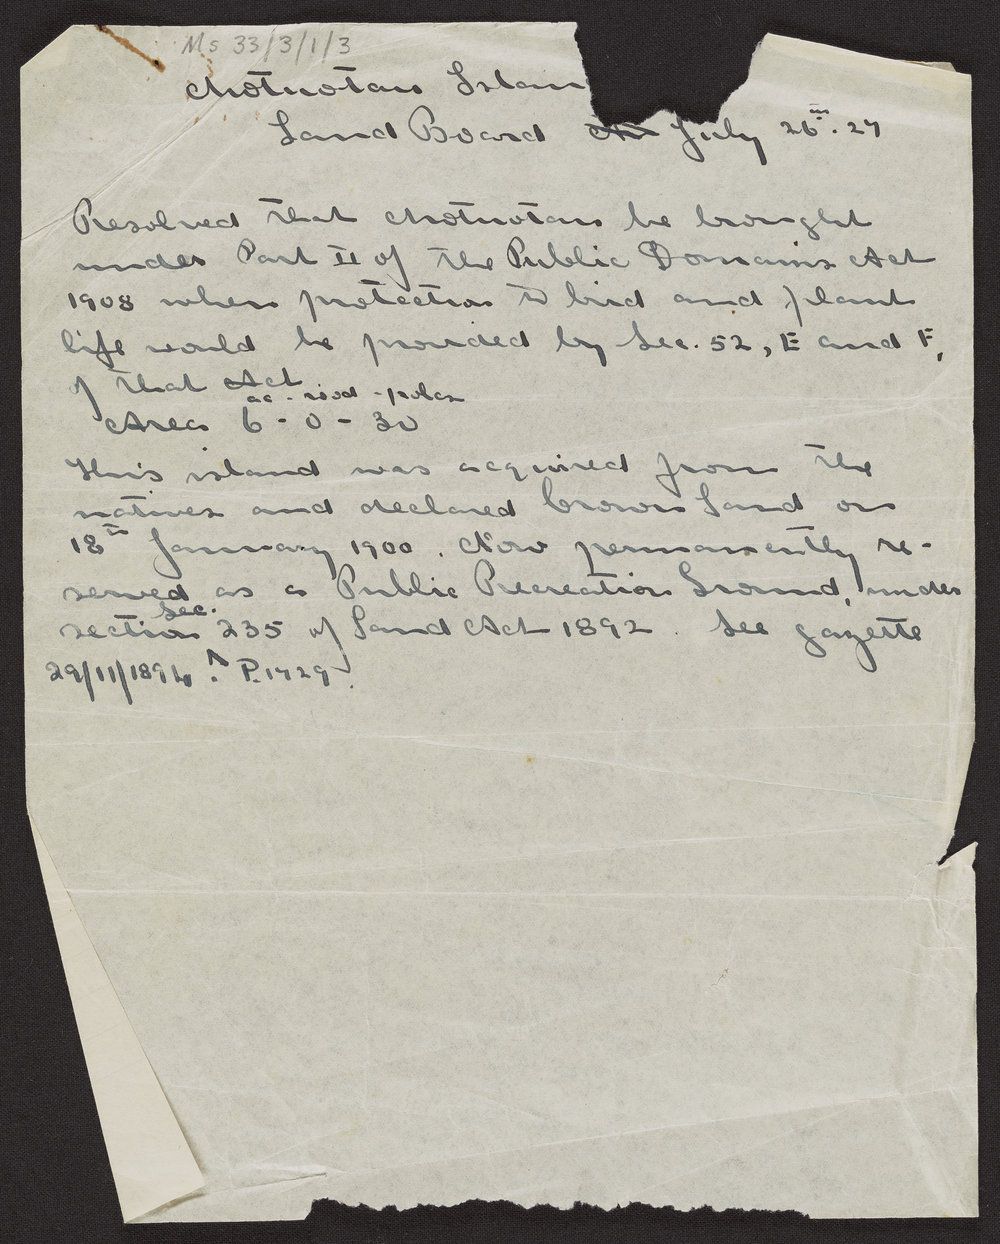 Ms 33/3/1/3
Motuotau Islan
Land Board July 26th. 27
Resolved that Motuotau be brought
under Part II of the Public Domains Act
1908 when protection to bird and plant
life would be provided by Sec. 52, E and F,
of that Act
ac - rood - poles
Area 6 - 0 - 30
This island was acquired from the
natives and declared Crown Land on
18th January 1900. Now permanently re-
served as a Public Recreation Ground, under
Sec.
section 235 of Land Act 1892. See gazette
P.1729.